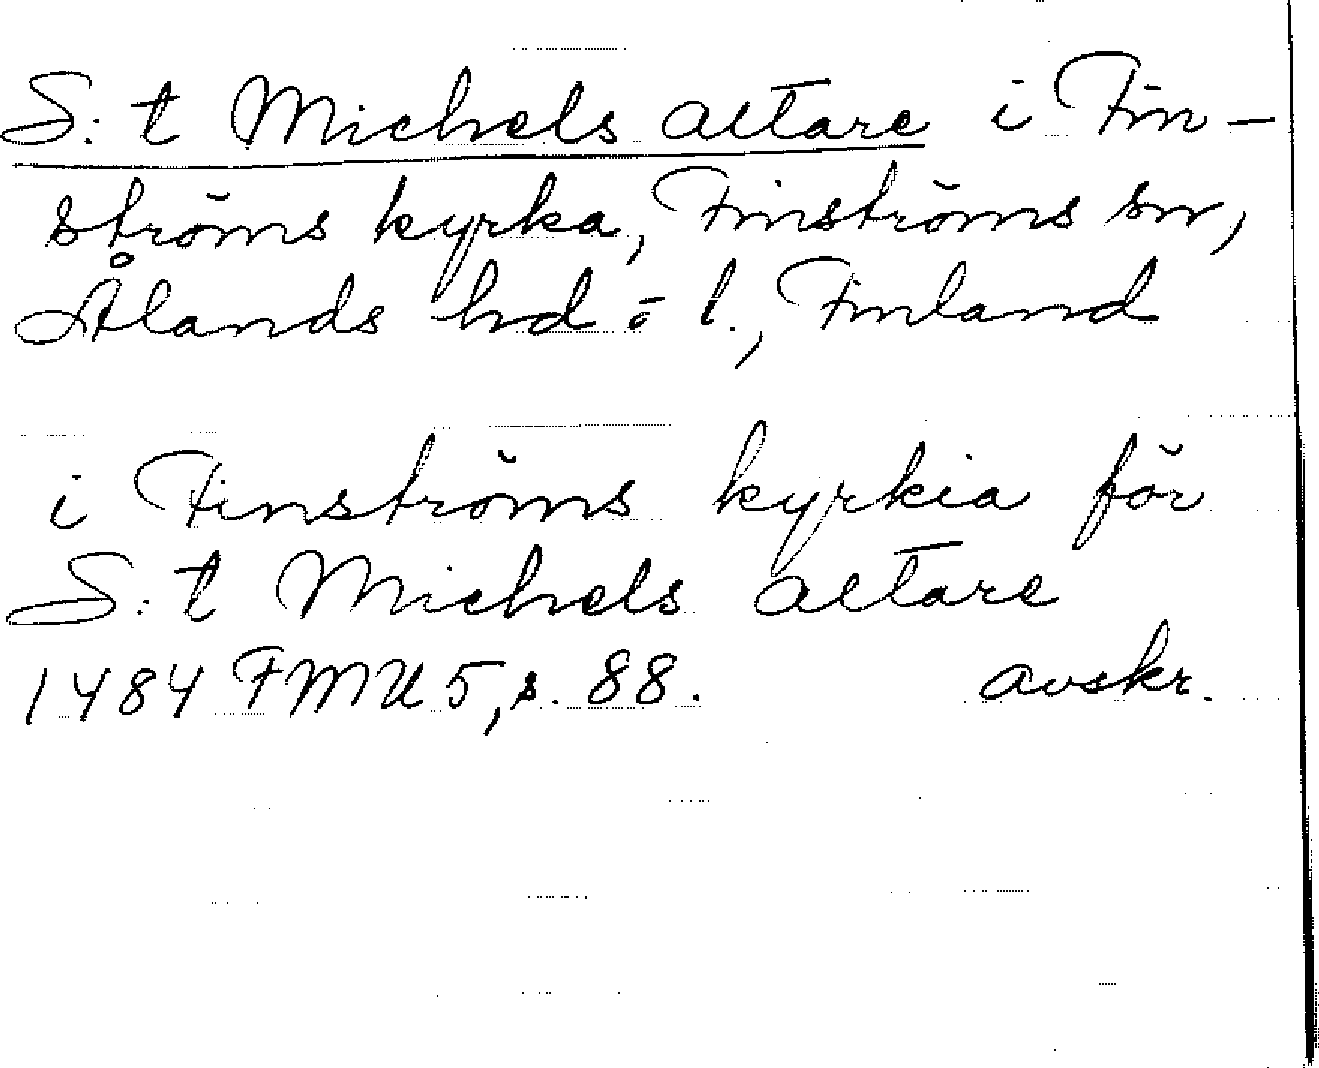 S:t Michels altare i Fin-
ströms kyrka, Finströms sn,
Ålands hd o l., Finland
i Finströms kyrkia för
S:t Michels altare
1484 FMU 5, s. 88. avskr.